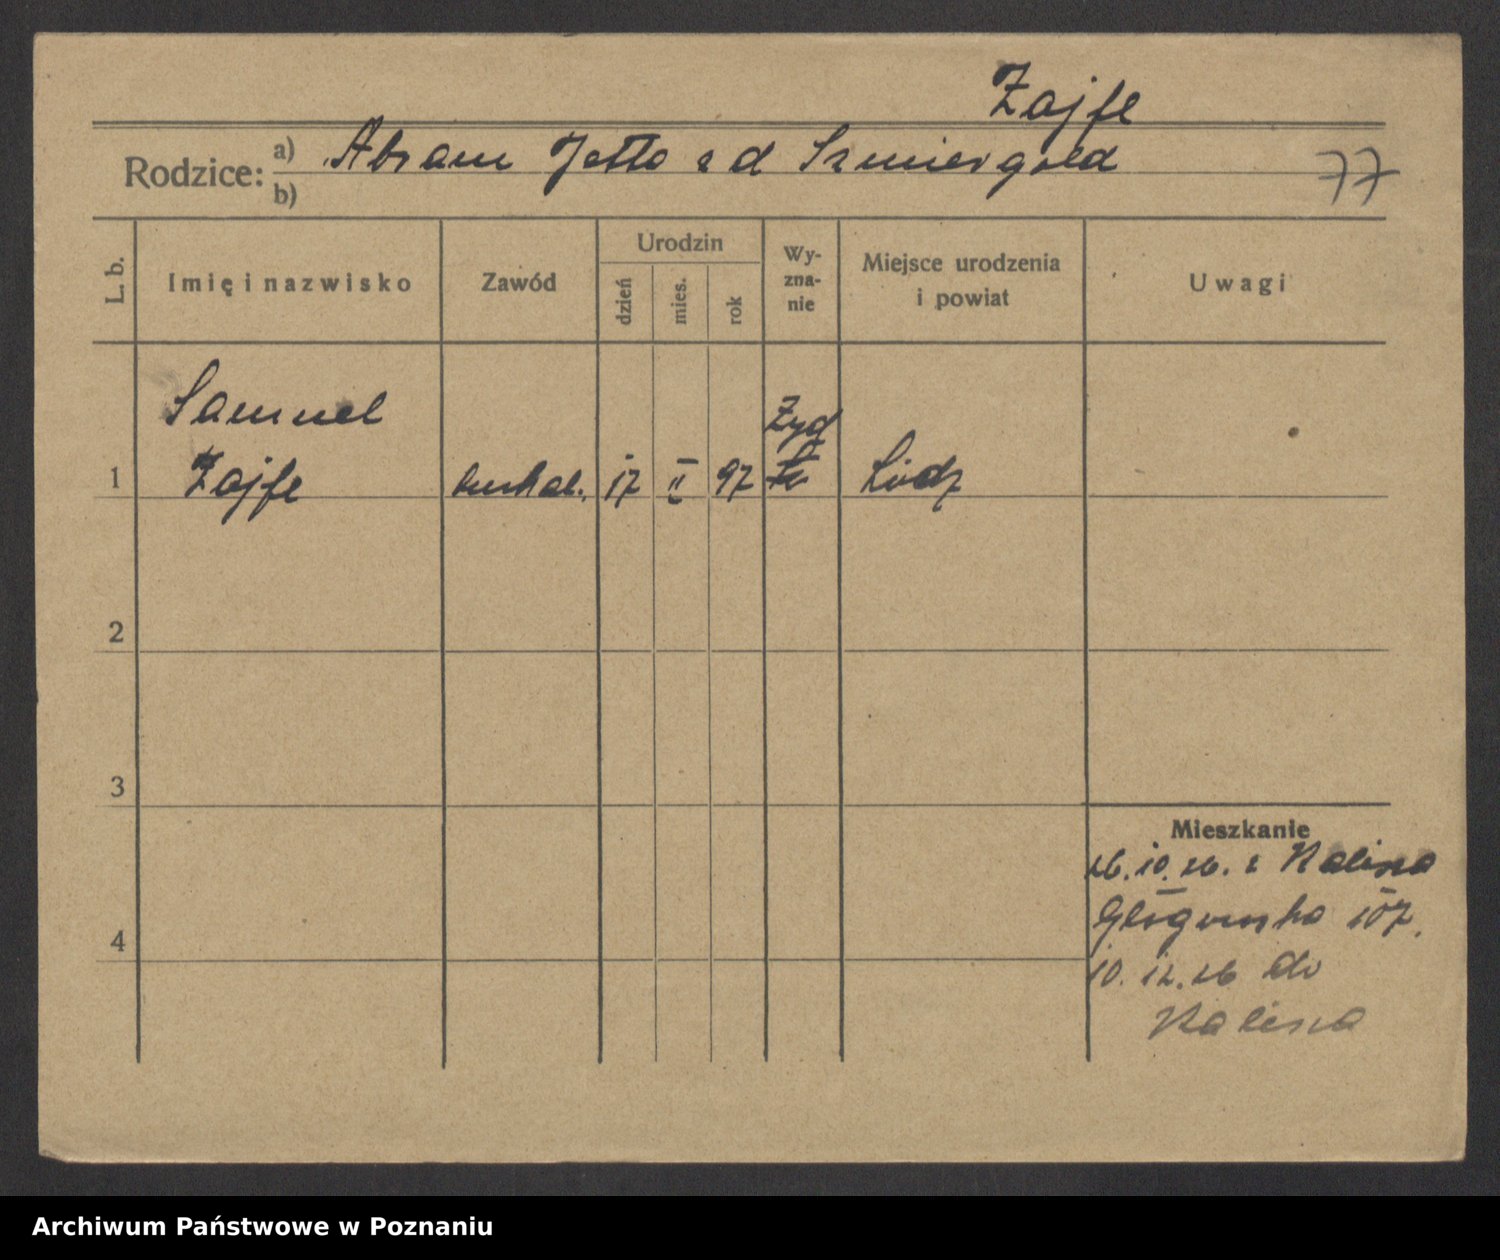 Zajfe
Rodzice: a) Abram Jetta z d Szmiergold
b)
77
L. b.
Imię i nazwisko
Zawód
Urodzin
dzień
mies.
rok
Wy-
zna-
nie
Miejsce urodzenia
i powiat
Uwagi
Samuel
Żyd
1 Zajfe buchal. 17 II 97 Łódź
2
3
4
Mieszkanie
26.10.26. z Kalisza
Głogowska 107.
10.12.26 do
Kalisza
Archiwum Państwowe w Poznaniu